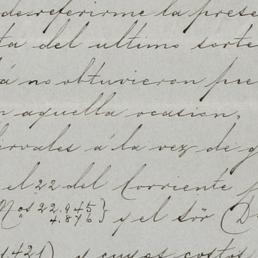 de referirme la prese
ta del ultimo sorte
á no obtuvieron pre
n aquella ocasion,
ervales á la vez de g
el 22 del Corriente p
Nos 22.945
4.876} y el sõr (D
421) y cuyos costos